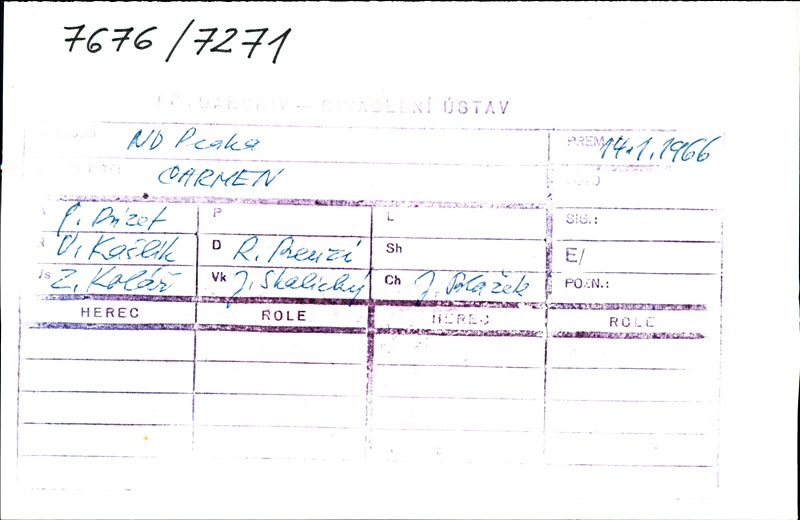 7676/7271
DIVADELNÍ ÚSTAV
ND Praha PREM. 14.1.1966
CARMEN
P L SIG.:
R V. Kašlík D R. Brenzi Sh E/
Z. Kolář Vk J. Skalický Ch J. Blažek POZN.:
HEREC ROLE HEREC ROLE